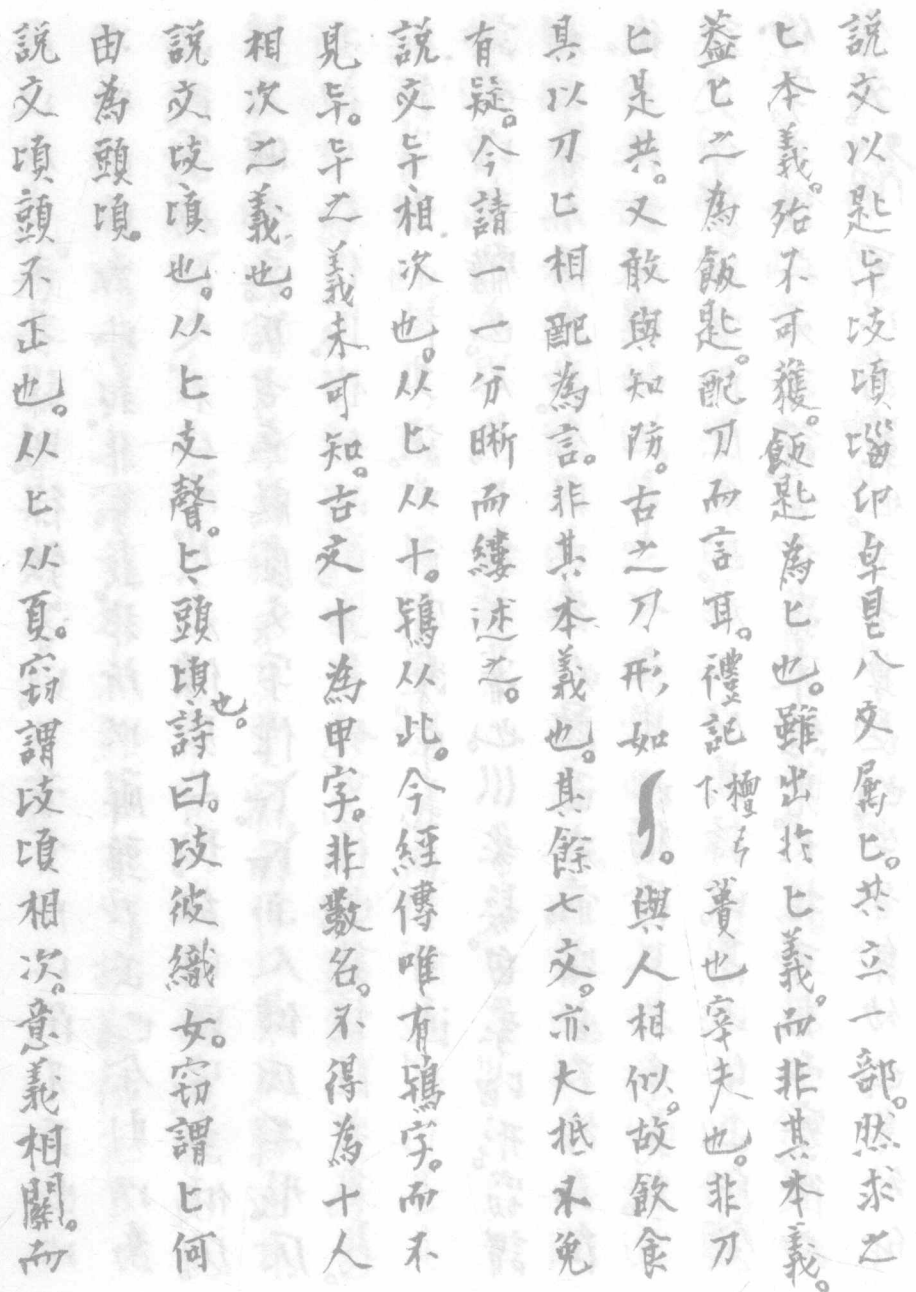 說文以匙𠤏𢻃頃𡿺卬卓𥃩八文屬匕。共立一部。然求之
匕本義。殆不可獲。飯匙為匕也。雖出於匕義。而非其本義。
葢匕之為飯匙。配刀而言耳。禮記檀弓下蕢也宰夫也。非刀
匕是共。又敢與知防。古之刀形如。與人相似。故飲食
具以刀匕相配為言。非其本義也。其餘七文。亦大抵未免
有疑。今請一一分晰而縷述之。
說文𠤏、相次也。从匕从十。鴇从此。今經傳唯有鴇字。而不
見𠤏。𠤏之義未可知。古文十為甲字。非數名。不得為十人
相次之義也。
說文𢻃、頃也。从匕支聲。匕、頭頃也。詩曰。𢻃彼織女。窃謂匕何
由為頭頃。
說文頃頭不正也。从匕从頁。窃謂𢻃頃相次。意義相關。而